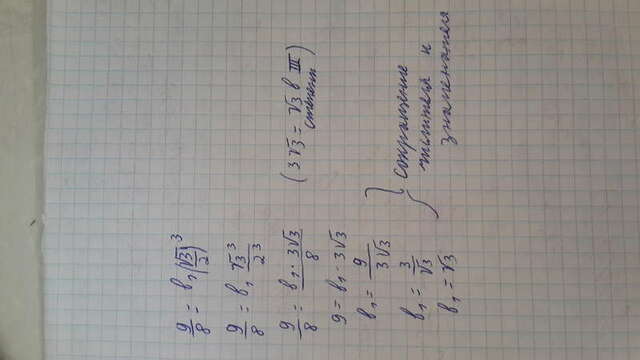 9/8 = b₁(√3/2)³
9/8 = b₁ √3³/2³
9/8 = b₁ · 3√3/8 (3√3 = √3 в III степени)
9 = b₁ · 3√3
b₁ = 9/3√3
b₁ = 3/√3
b₁ = √3
} сокращение
числителя и
знаменателя